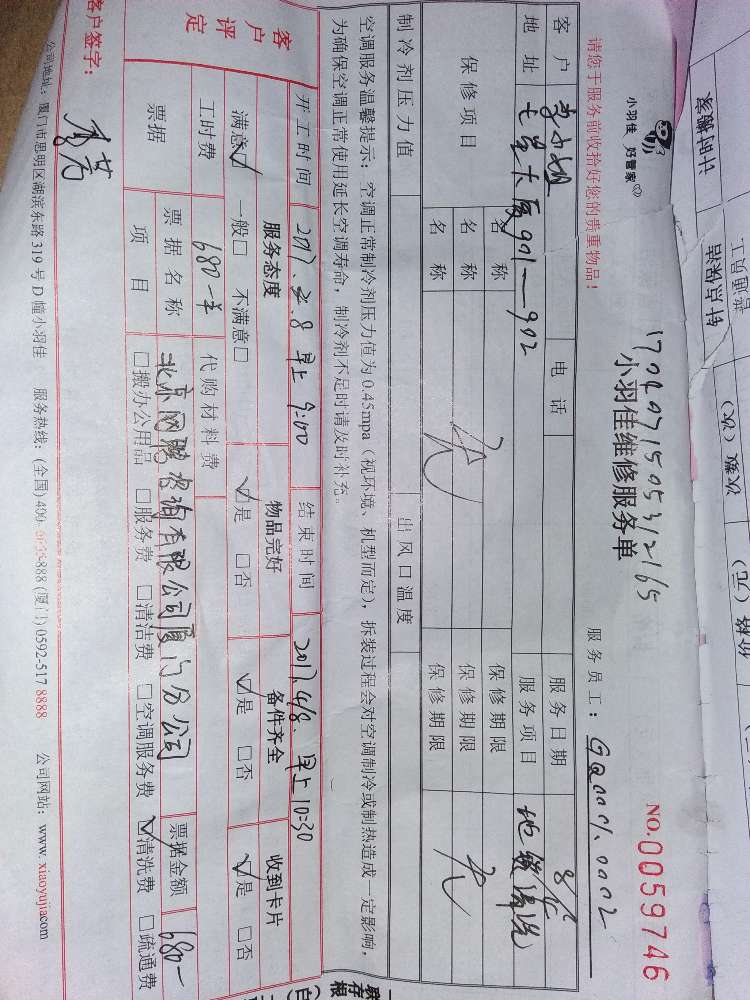 小羽佳 好管家
1704071505312165
小羽佳维修服务单
NO.0059746
请您于服务前收拾好您的贵重物品!
服务员工:
客户 李小姐 电话 服务日期 8/4
地址 七星大厦901—902 服务项目 地毯清洗
保修项目 名称 保修期限
名称 无 保修期限 无
名称 保修期限
制冷剂压力值 出风口温度
空调服务温馨提示:空调正常制冷剂压力值为0.45mpa(视环境、机型而定),拆装过程会对空调制冷或制热造成一定影响,
为确保空调正常使用延长空调寿命,制冷剂不足时请及时补充。
开工时间 2017.4.8 早上 9:00 结束时间 2017.4/8. 早上 10:30
客户评定
服务态度 物品完好 备件齐全 收到卡片
满意☑ 一般□ 不满意□ ☑是 □否 ☑是 □否 ☑是 □否
工时费 680-元 代购材料费
票据 票据名称 北京同聘咨询有限公司厦门分公司 票据金额 680—
项目 □搬办公用品 □服务费 □清洁费 □空调服务费 ☑清洗费 □疏通费
客户签字:
公司地址:厦门市思明区湖滨东路319号D幢小羽佳 服务热线:(全国)400-0555-888(厦门)0592-517 8888 公司网站:www.xiaoyujiacom
计时擦窗
钟点保洁
员工
次数(次)
价格(元)
存根